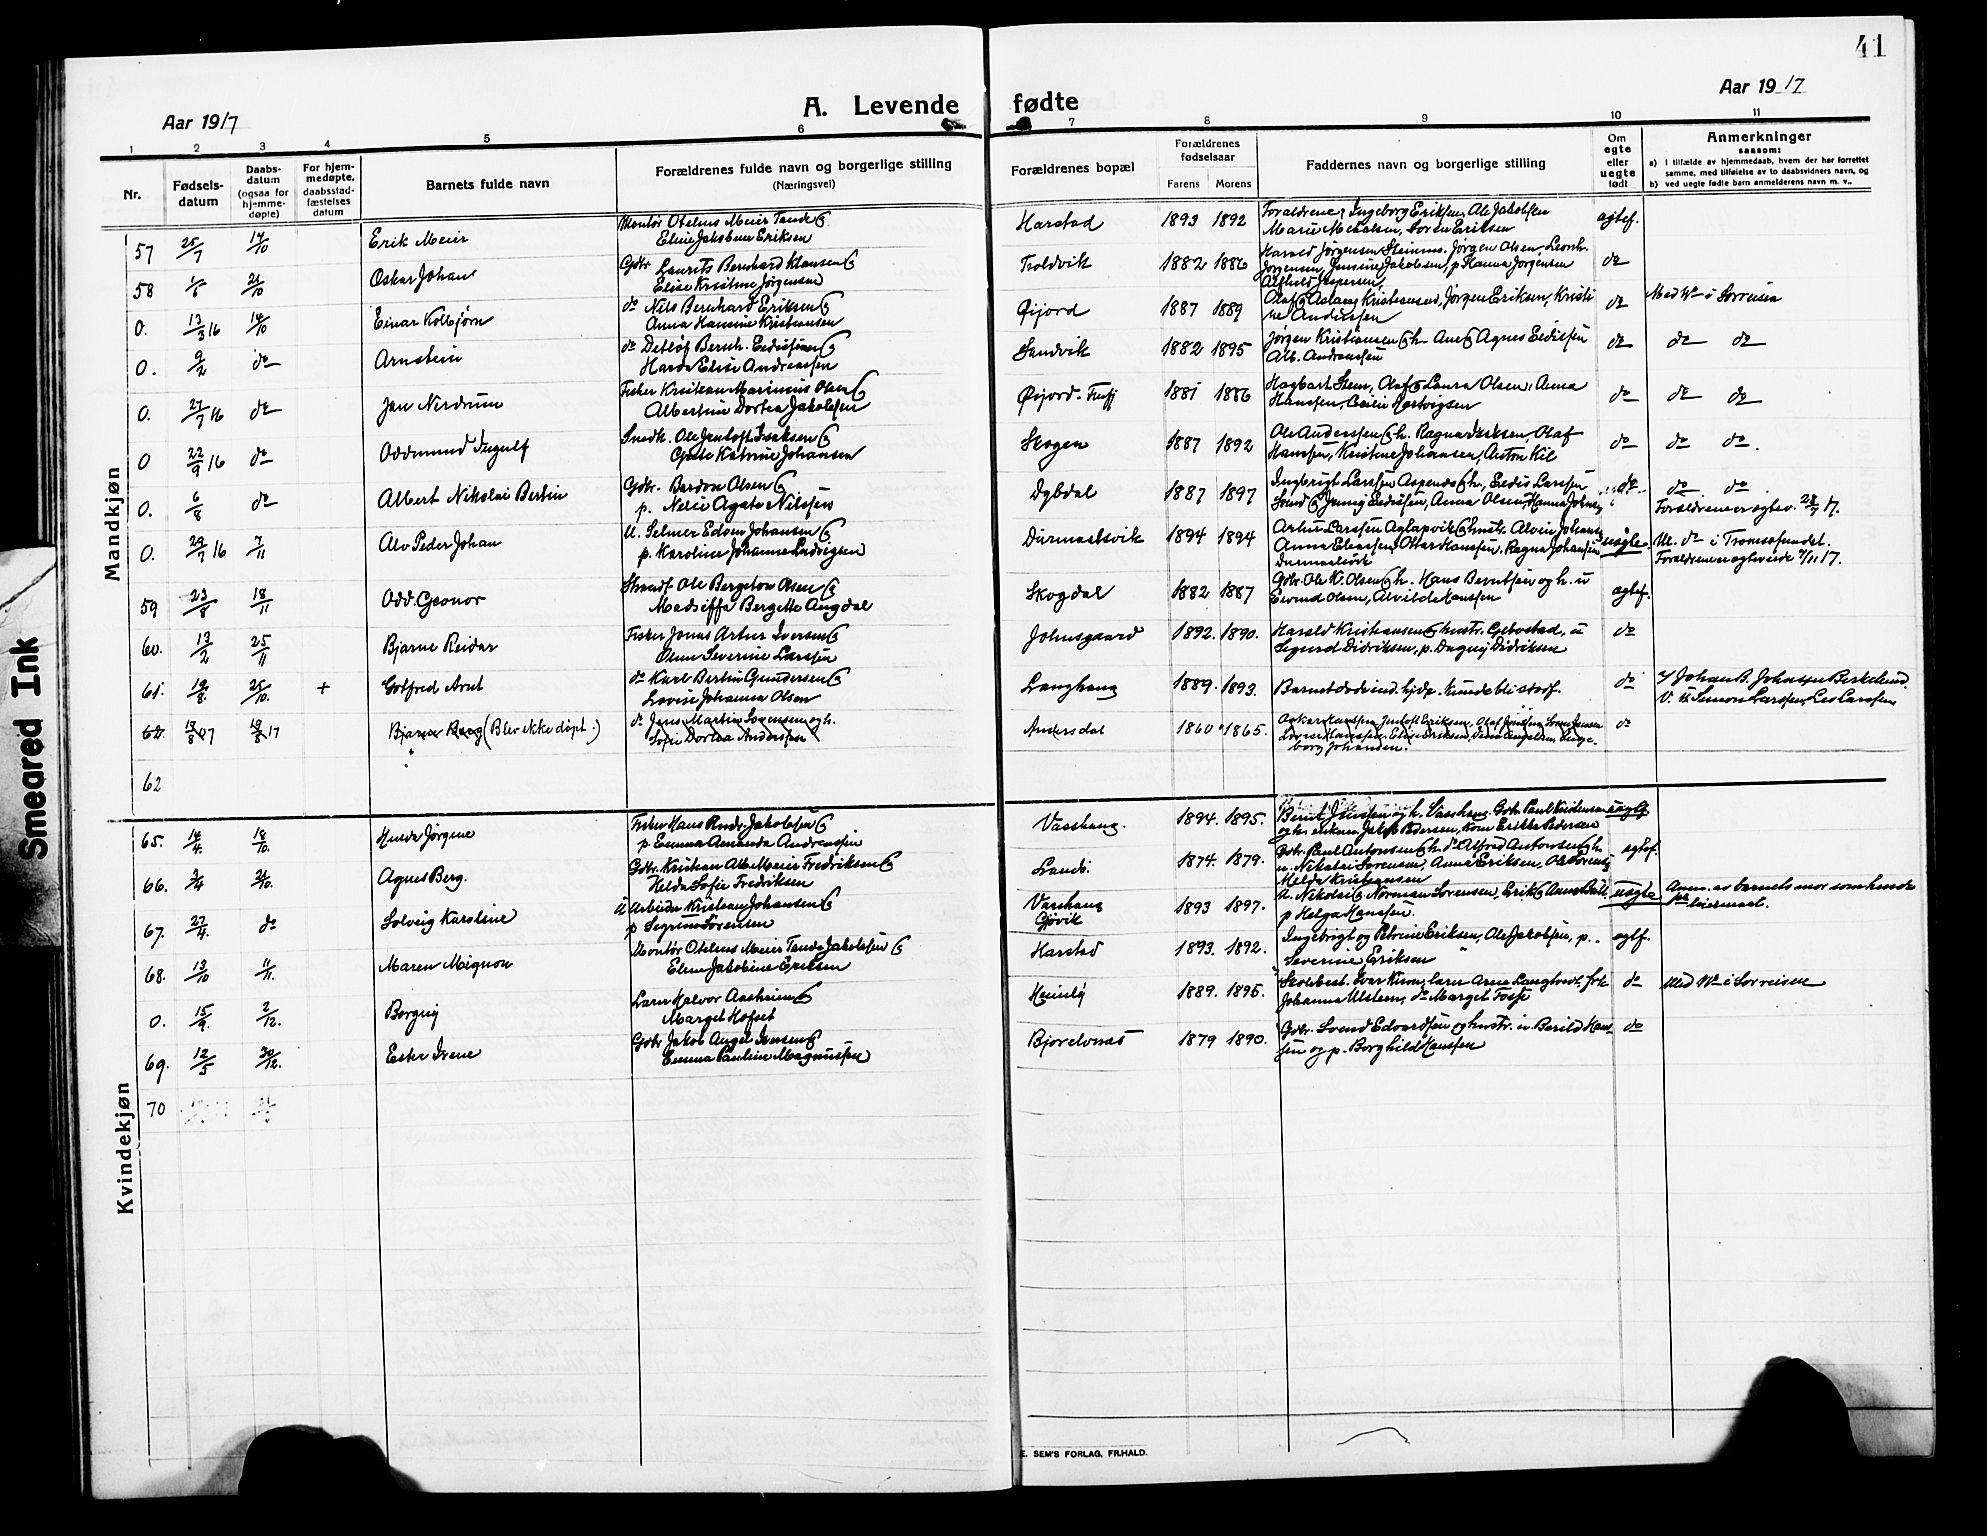 41
Aar 1917
A. Levende fødte
Aar 1917
1 2 3 4 5 6 7 8 9 10 11
Nr.
Fødsels-
datum
Daabs-
datum
(ogsaa for
hjemme-
døpte)
For hjem-
medøpte,
daabsstad-
fæstelses
datum
Barnets fulde navn
Forældrenes fulde navn og borgerlige stilling
(Næringsvei)
Forældrenes bopæl
Forældrenes
fødselsaar
Farens Morens
Faddernes navn og borgerlige stilling
Om
egte
eller
uegte
født
Anmerkninger
saasom:
a) I tilfælde av hjemmedaab, hvem der har forrettet
samme, med tilføielse av to daabsvidners navn, og
b) ved uegte fødte barn anmelderens navn m. v..
Mandkjøn
57 25/7 14/10 Erik Meier
Montør Otelius Meier Tande
Eline Jakobine Eriksen
Harstad 1893 1892
Forældrene, Ingeborg Eriksen, Ole Jakobsen
Marie Mikalsen, Soren Eriksen
egtef.
58 21/10 Oskar Johan
Gdbr. Laurits Bernhard Klausen
Elise Kristine Jørgensen
Troldvik 1882 1886
Harald Jørgensen Steinnes. Jørgen Olsen, Leonh.
Jørgensen, Jensine Jakobsen, p. Hanna Jørgensen
Alfhild Jespersen,
do
0. 13/3 16 14/10 Einar Kolbjørn
do Nils Bernhard Eriksen
Anna Hansine Kristiansen
Øijord 1887 1889
Olaf Aslaug Kristiansen, Jørgen Eriksen, Kristi
ne Andersen
do
i Sorreisa
0. 9/2 do Arnstein
do Detlof Bernh. Eedisen
Harda Elise Andreassen
Sandvik 1882 1895
Jørgen Kristiansen h. Ane Agnes Eedisen
Alb. Andreassen
do do do
0. 27/7 16 do Jan Nerdrum
Fisker Kristian Marinius Olsen
Albertine Dortea Jakobsen
Øijord 1881 1886
Hagbart Stern, Olaf Laura Olsen, Anna
Hanssen, Hartvigsen
do do do
0 22/9 16 do Oddmund Ingulf
Snedk. Ole Jentoft Isaksen
Katrine Johansen
Skogen 1887 1892
Ole Anderssen h. Ragna Isaksen, Olaf
Hanssen, Kristine Johansen, Anton Kil
do do do.
0. 6/8 do Albert Nikolai Bertin
Gdbr. Bardon Olsen
p. Nelie Agate Nilssen
Dybdal 1887 1897
Ingbrigt Larssen Aspenes h., Eedis Larssen
Svend Jenny Eedissen, Anna Olsen, Hanna
do do
Forældrene er egtev. 17.
0. 29/7 16 7/11 Alv Peder Johan
U. Selmer Edson Johansen
p. Karoline Johanne Ludvigsen
Durmaalsvik 1894 1894
Artur Larssen Aglapvik hustr. Alvin Johans
Anna Eliassen, Ottar Hanssen, Ragna Johansen
Durmaalsvik
uegte.
do i Tromsosundet.
Forældrene er egteviede 7/11 17.
59 23/8 18/11 Odd. Geonor
Strands. Ole Bergeton Olsen
Bergette Angdal
Skogdal 1882 1887
Gdbr. Ole K. Olsen h. Hans Berntsen og h. u
Eivind Olsen, Alvilde Hanssen
egtef.
60. 13/2 25/11 Bjarne Reidar
Fisker Jonas Artur Iversen
Oline Severine Larssen
Johnsgaard 1892. 1890.
Harald Kristiansen hustr. Gibostad, u
Sigurd Didriksen, p. Dagny Didriksen
do
61. 19/8. 25/10. + Gotfred Arnt
do Karl Bertin Gundersen
Lovise Johanna Olsen
Langhaug 1889. 1893.
Barnet døde ind.
do
Johan B. Johnsen
V. Simon Larssen, Larssen
62. 18/8 17 19/8 17 Bjarne Berg (Blev ikke døpt.)
do Jens Martin Sorensen og h.
Sofie Dortea Anderssen
Andersdal 1860 1865.
Oskar Hanssen, Jentoft Eriksen, Olaf
Hanssen, Elise Eriksen, Inge-
borg Johansen.
do
62
Kvindekjøn
65. 14/4. 18/10. Jørgine
Fisker Hans Andr. Jakobsen
p. Emma Amanda Andreassen
Vasshaug. 1894. 1895.
Bernt Jenssen og h. Vasshaug. Gdbr. Paul Kristensen
og h. enkem. Jakob Pedersen, kone Erikke Pedersen
uegte
66. 21/10. Agnes Berg.
Gdbr. Kristian Fredriksen
Helda Sofie Fredriksen
Lande. 1874. 1879.
Gdbr. Paul Antonsen h. do Alfred Antonsen h.
u. Nikolai Sorensen, Anna Eriksen, Ole Sorens
Helda Kristiansen
egtef.
67. 27/4. do Solveig Karoline
Arbeider Kristian Johansen
p Segrine Sørensen
Vasshaug
Gjøvik
1893 1897.
U. Nikolai Norman Sorensen, Erik
p Helga Hanssen.
uegte
Anm. av barnets mor som hendes
leiermaal.
68. 13/10 11/11. Maren Mignon
Montør Otelius Meier Tande Jakobsen
Eline Jakobine Eriksen
Harstad 1893. 1892.
Ingebrigt og Petrine Eriksen, Ole Jakobsen, p.
Severine Eriksen
egtf.
0. 15/9. 2/12. Borgny
Lærer Halvor Aasheim
Marget Hofset
1889. 1895.
Skolebest. Ivar Kirsen, lærer Arne Langtvedt, frk
Johanna Ulstein, do Marget Fosse
do
i Sorreisen
69. 12/5 30/12. Ester Irene
Gdbr Jakob Angel Iversen
Emma Pauline Magnussen
Bjorelvnes 1879 1890.
Gdbr. Svend Edvardsen og hustr. u Berild Hans
sen og p. Borghild Hanssen
do
70
E. SEM'S FORLAG, FR.HALD.
Smeared Ink